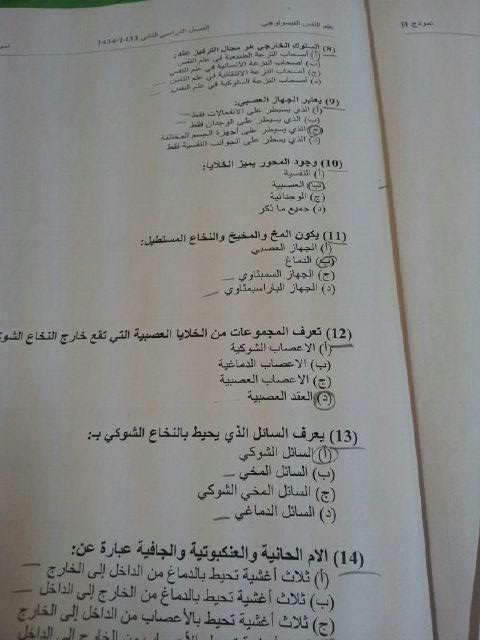 نموذج B
علم النفس الفيسولوجي
الفصل الدراسي الثاني 1434/1433
(8) السلوك الخارجي هو مجال التركيز عند:
أ) أصحاب النزعة الطبيعية في علم النفس
ب) أصحاب النزعة الانسانية في علم النفس
ج) أصحاب النزعة الانتقائية في علم النفس
د) أصحاب النزعة السلوكية في علم النفس
(9) يعتبر الجهاز العصبي:
أ) الذي يسيطر على الانفعالات فقط
ب) الذي يسيطر على الوجدان فقط
ج) الذي يسيطر على أجهزة الجسم المختلفة
د) الذي يسطر على الجوانب النفسية فقط
(10) وجود المحور يميز الخلايا:
أ) النفسية
ب) العصبية
ج) الوحدانية
د) جميع ما ذكر
(11) يكون المخ والمخيخ والنخاع المستطيل:
أ) الجهاز العصبي
ب) الدماغ
ج) الجهاز السمبثاوي
د) الجهاز الباراسيمثاوي
(12) تعرف المجموعات من الخلايا العصبية التي تقع خارج النخاع
أ) الاعصاب الشوكية
ب) الاعصاب الدماغية
ج) الاعصاب العصبية
د) العقد العصبية
(13) يعرف السائل الذي يحيط بالنخاع الشوكي بـ:
أ) السائل الشوكي
ب) السائل المخي
ج) السائل المخي الشوكي
د) السائل الدماغي
(14) الام الحانية والعنكبوتية والجافية عبارة عن:
أ) ثلاث أغشية تحيط بالدماغ من الداخل إلى الخارج
ب) ثلاث أغشية تحيط بالدماغ من الخارج إلى الداخل
ج) ثلاث أغشية تحيط بالأعصاب من الداخل إلى الخارج